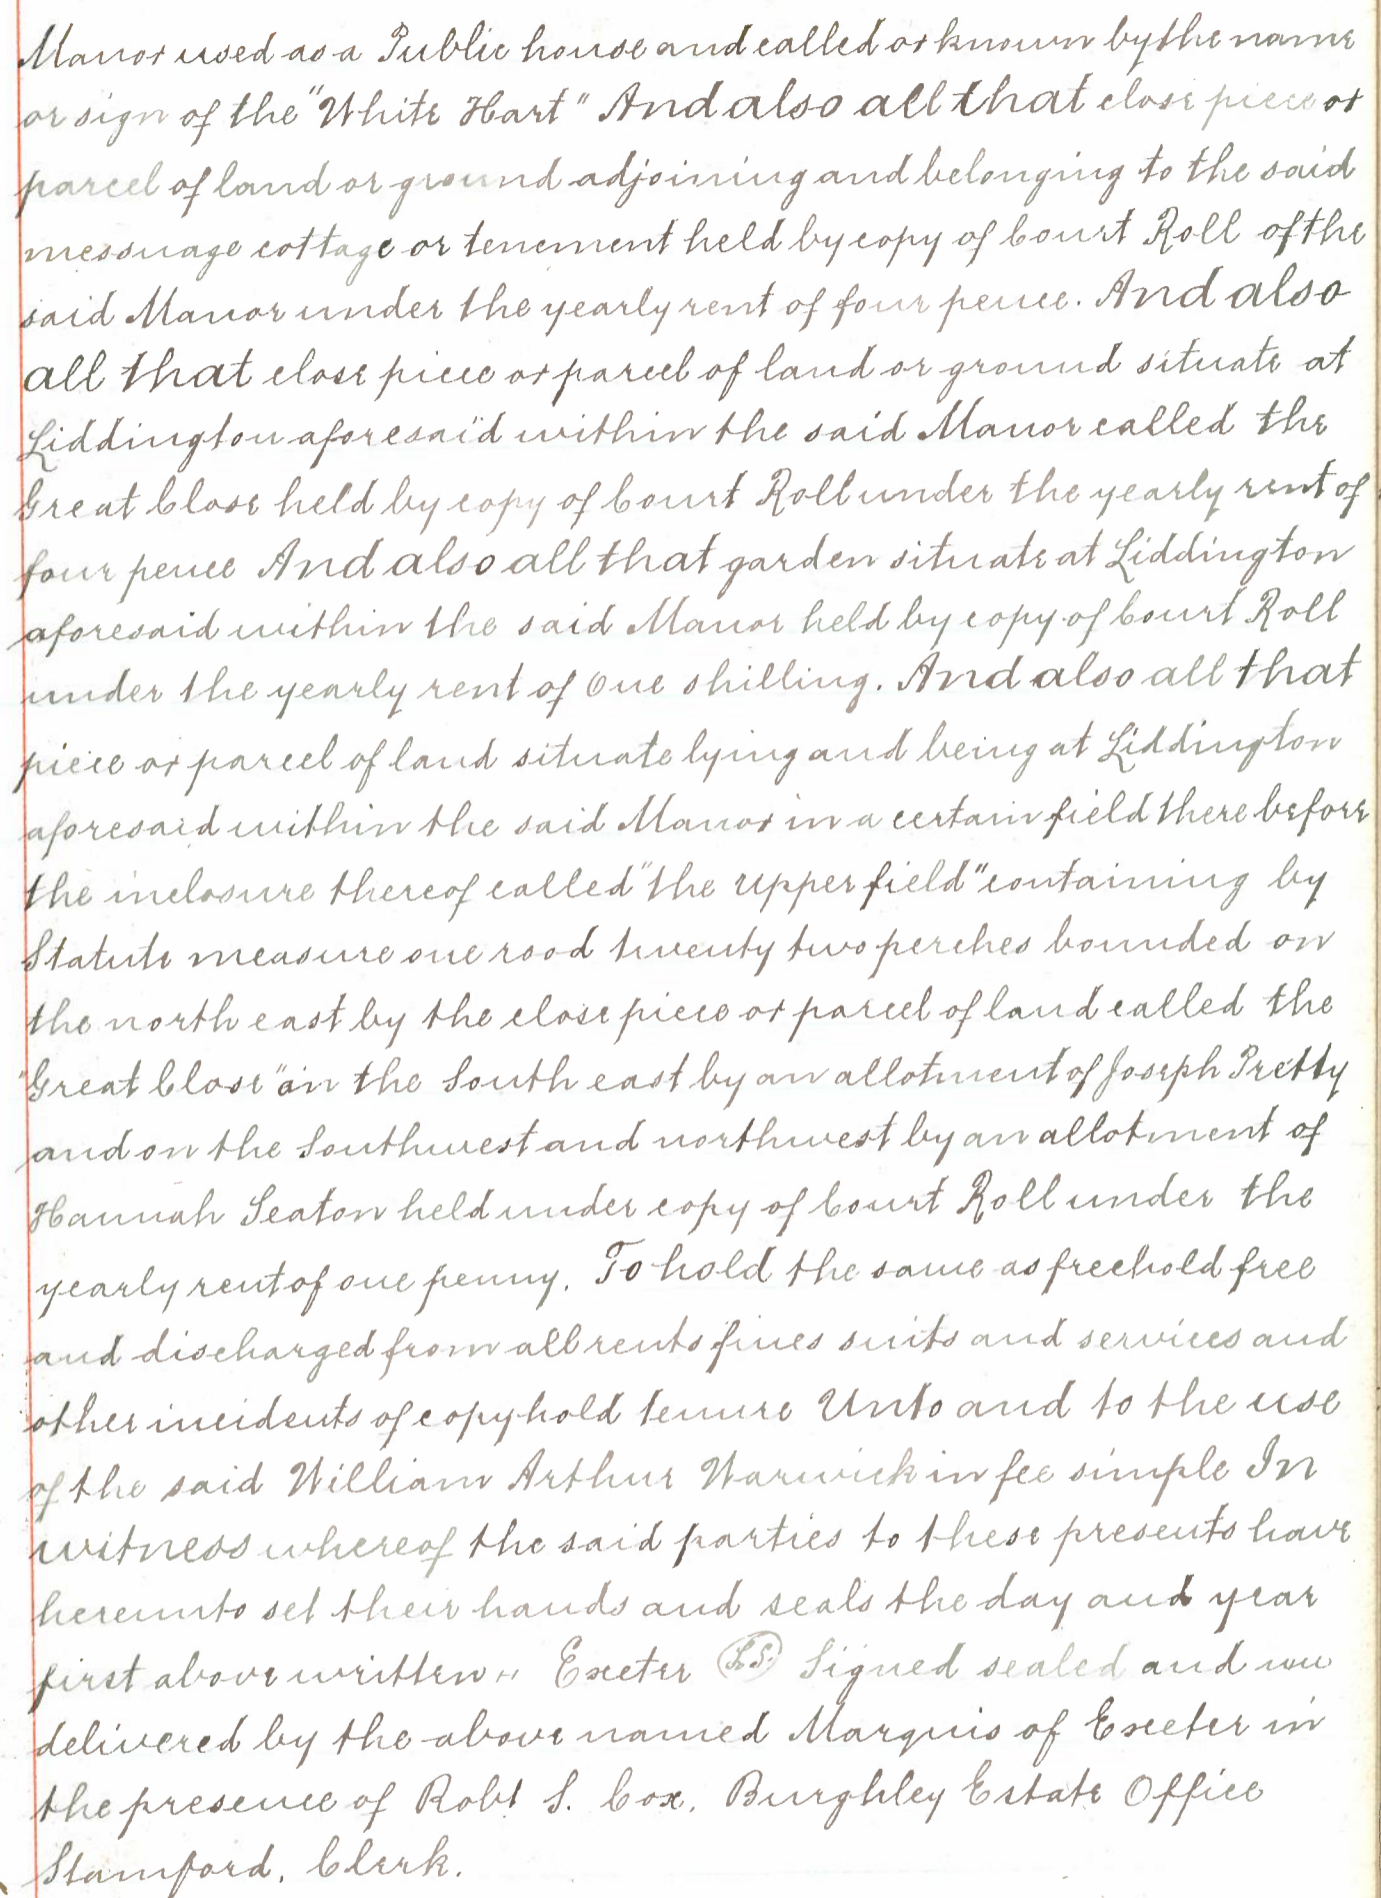 Manor used as a Public house and called or known by the name
or sign of the "White Hart" And also all that close piece or
parcel of land or ground adjoining and belonging to the said
messuage cottage or tenement held by copy of Court Roll of the
said Manor under the yearly rent of four pence. And also
all that close piece or parcel of land or ground situate at
Liddington aforesaid within the said Manor called the
Great Close held by copy of Court Roll under the yearly rent of
four pence And also all that garden situate at Liddington
aforesaid within the said Manor held by copy of Court Roll
under the yearly rent of One shilling. And also all that
piece or parcel of land situate lying and being at Liddington
aforesaid within the said Manor in a certain field there before
the inclosure thereof called "the upper field" containing by
Statute measure one rood twenty two perches bounded on
the north east by the close piece or parcel of land called the
"Great Close" on the South east by an allotment of Joseph Pretty
and on the Southwest and northwest by an allotment of
Hannah Seaton held under copy of Court Roll under the
yearly rent of one penny. To hold the same as freehold free
and discharged from all rents fines suits and services and
other incidents of copyhold tenure Unto and to the use
of the said William Arthur Warwick in fee simple In
witness whereof the said parties to these presents have
hereunto set their hands and seals the day and year
first above written ,, Exeter L.S. Signed sealed and
delivered by the above named Marquis of Exeter in
the presence of Robt. S. Cox. Burghley Estate Office
Stamford. Clerk.